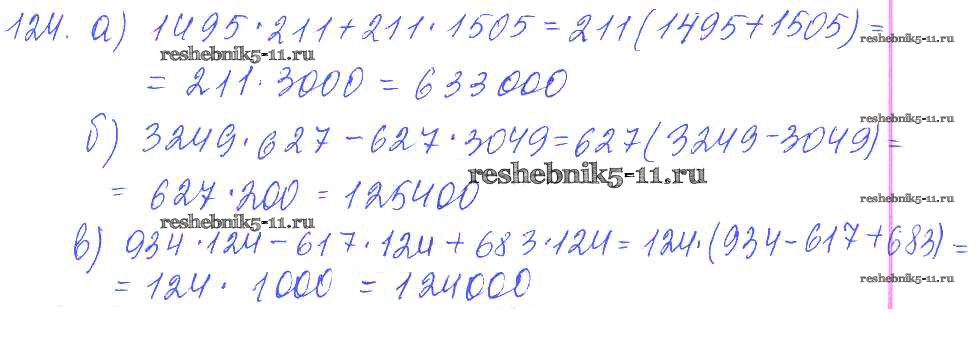 124. а) 1495·211+211·1505=211(1495+1505)=
reshebnik5-11.ru reshebnik5-11.ru
=211·3000=633000
reshebnik5-11.ru
б) 3249·627-627·3049=627(3249-3049)=
reshebnik5-11.ru
=627·200=125400
reshebnik5-11.ru reshebnik5-11.ru
в) 934·124-617·124+683·124=124·(934-617+683)=
reshebnik5-11.ru
=124·1000=124000
reshebnik5-11.ru